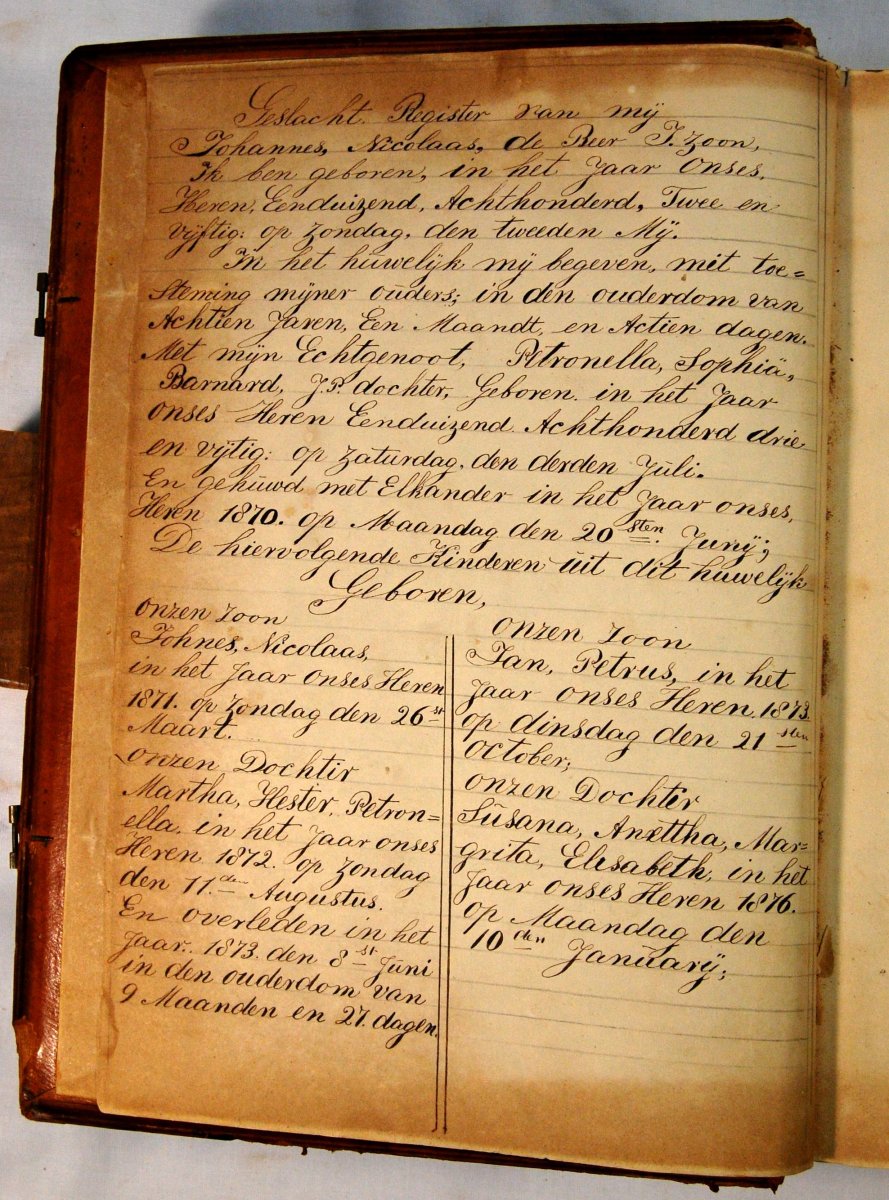 Geslacht. Register van mÿ
Johannes, Nicolaas, de Beer J. Zoon,
Ik ben geboren, in het Jaar Onses,
Heren, Eenduizend, Achthonderd, Twee en
vÿftig: op Zondag, den tweeden Mÿ.
In het huwelÿk mÿ begeven, mit toe=
steming mÿner ouders; in den ouderdom van
Achtien Jaren, Een Maandt, en Actien dagen.
Met mÿn Echtgenoot, Petronella, Sophia,
Barnard, J.P. dochter, Geboren. in het Jaar
onses Heren Eenduizend Achthonderd drie
en vÿtig: op Zaturdag, den derden Juli.
En gehuwd met Elkander in het Jaar onses,
Heren 1870. op Maandag den 20sten. Junÿ;
De hiervolgende Kinderen uit dit huwelÿk
Geboren,
onzen Zoon
Johnes, Nicolaas,
in het Jaar Onses Heren
1871. op Zondag den 26st
Maart.
onzen Dochtir
Martha, Hester, Petron=
ella. in het Jaar onses
Heren 1872. op Zondag
den 11.den Augustus.
En overleden in het
Jaar. 1873. den 8st Juni
in den ouderdom van
9 Maanden en 27. dagen.
onzen Zoon
Jan, Petrus, in het
Jaar onses Heren, 1873.
op dinsdag den 21sten
October;
onzen Dochtir
Susana, Anettha, Mar=
grita, Elisabeth, in het
Jaar onses Heren 1876.
op Maandag den
10den Januarÿ;